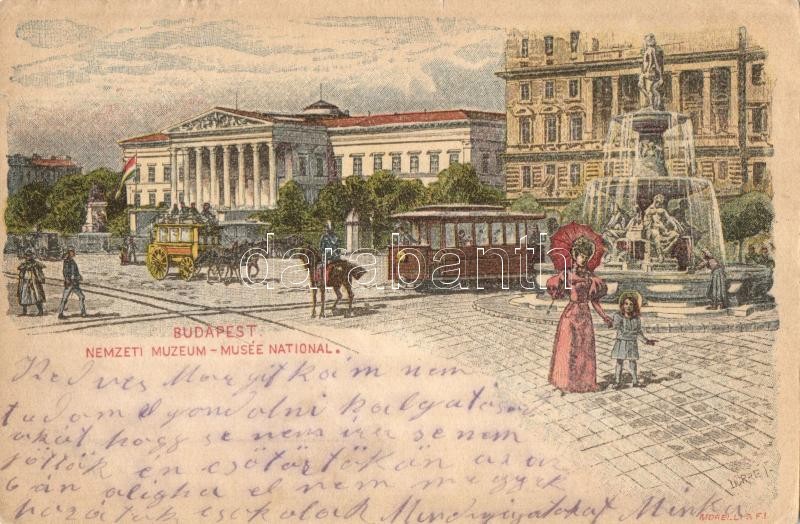 BUDAPEST.
NEMZETI MUZEUM – MUSÉE NATIONAL.
darabanth
Kedves Margitkám nem
tudom elgondolni halgatásod
okát hogy se nem irsz se nem
jöttök én csötörtökön az az
6 án aligha el nem megyek
hozzátok csokolak Mindnyájatokat Minka
MORELLI S. F.I.